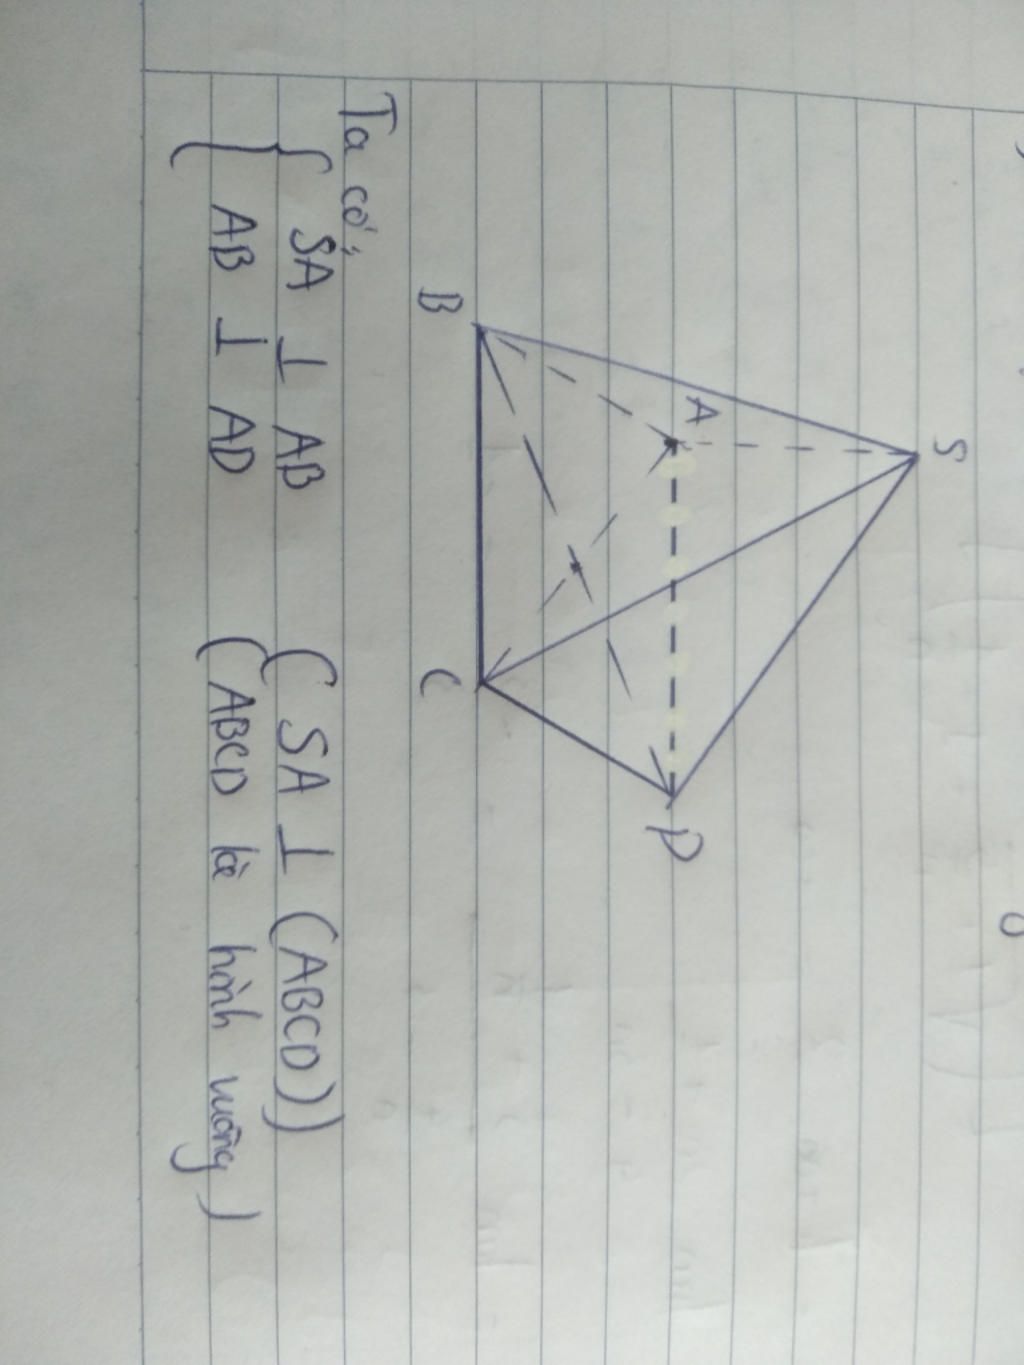 S
A
B
C
D
Ta có:
{ SA ⊥ AB (SA ⊥ (ABCD))
{ AB ⊥ AD (ABCD là hình vuông)